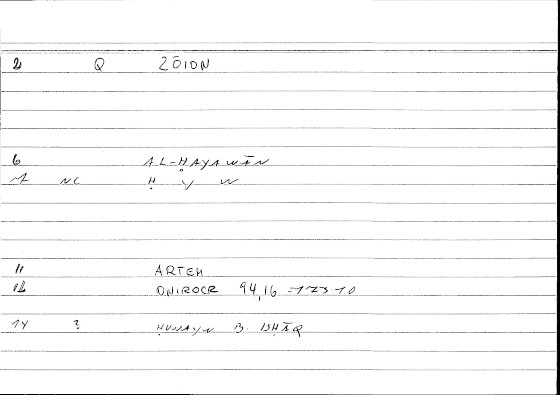 2 Q ZŌION
6 AL-ḤAYAWĀN
7 NC Ḥ Y W
11 ARTEM
12 ONIROCR 94,16 = 173-10
14 ? ḤUNAYN B. ISḤĀQ